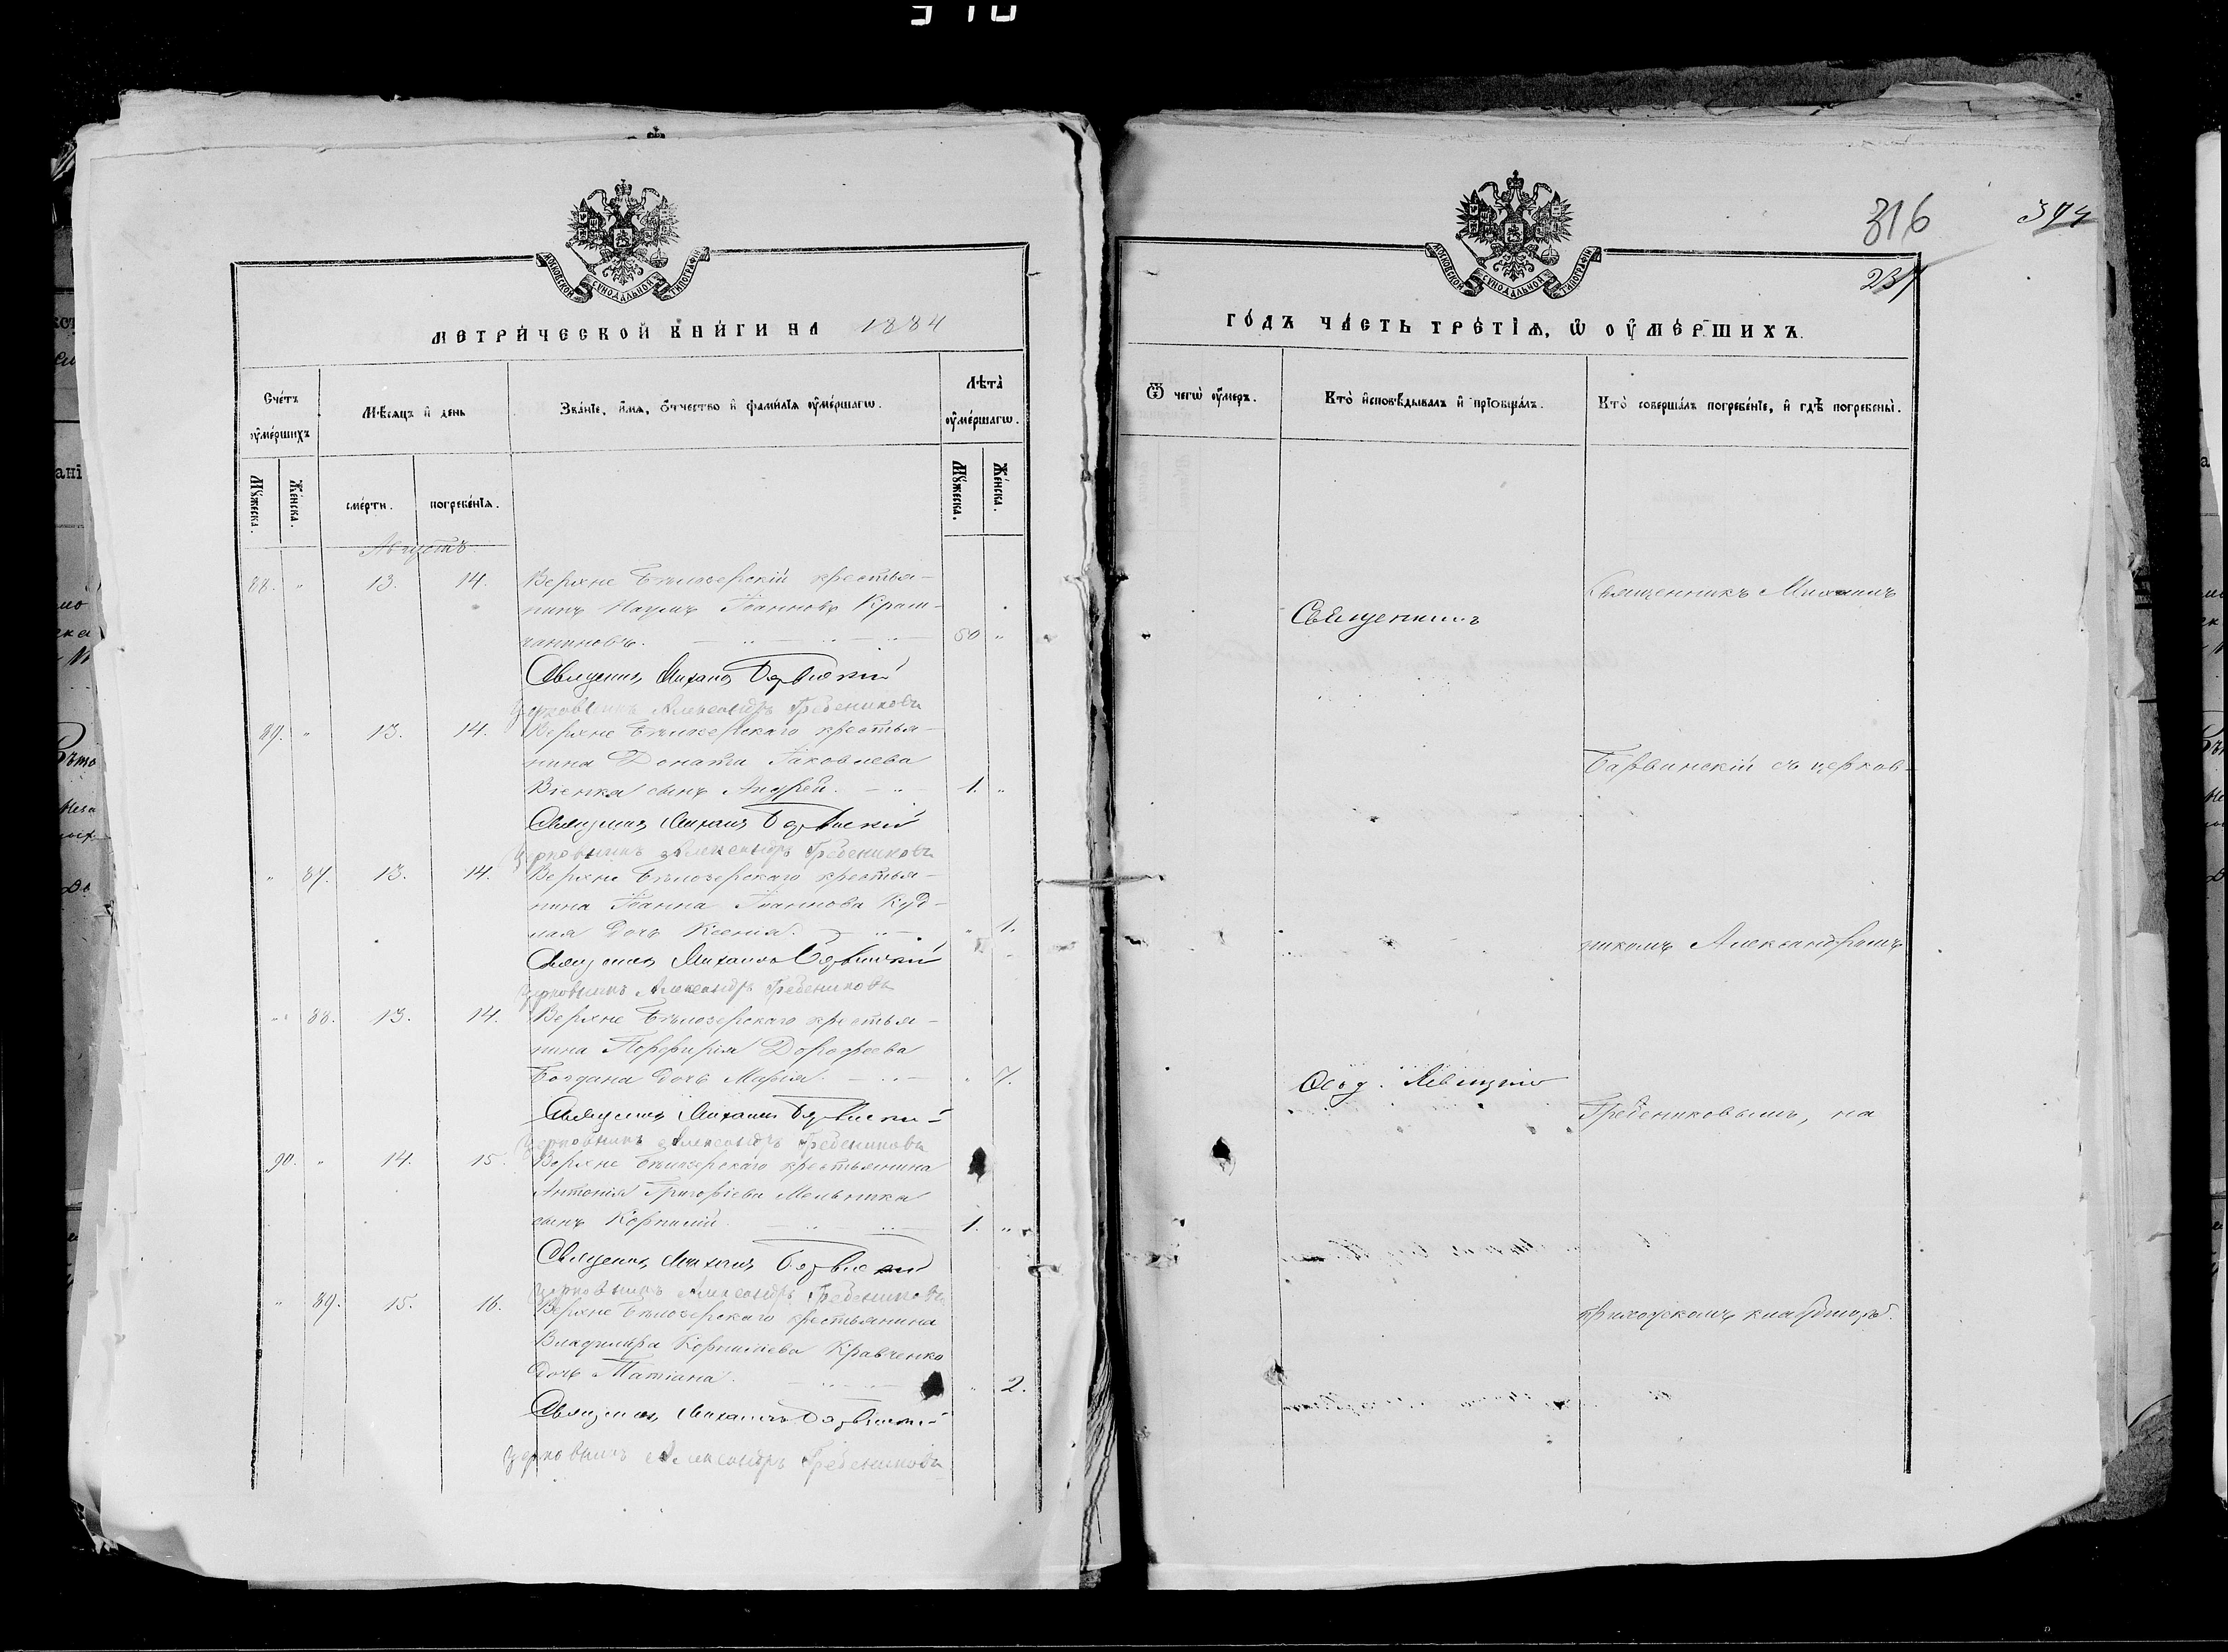 316
374
231
МОСКОВСКОЙ СѴНОДАЛЬНОЙ ТИПОГРАФІИ
МЕТРИ́ЧЕСКОЙ КНИ́ГИ НА 1884
Счéтъ ᲂу҆мéршихъ
Мѣ́сяцъ и҆ день
Звáнїе, и҆́мя, ѻ҆́тчество и҆ фами́лїя ᲂу҆мéршагѡ.
Лѣ́та ᲂу҆мéршагѡ.
Мꙋ́жеска.
Жéнска.
смéрти.
погребéнїя.
Мꙋ́жеска.
Жéнска.
Августъ
88. " 13. 14. Верхне Бѣлозерскій крестья-
нинъ Наумъ Іоанновъ
50 "
Священник Михаил Барвинский
Церковникъ Александръ Гребениковъ
89. " 13. 14. Верхне Бѣлозерскаго крестья-
нина Доната Іаковлева
сынъ Андрей. 1. "
Священник Михаил Барвинский
Церковникъ Александръ Гребениковъ
" 87. 13. 14. Верхне Бѣлозерскаго крестья-
нина Іоанна Іоаннова Куд-
лая дочь Ксенія. " 1.
Священник Михаил Барвинский
Церковникъ Александръ Гребениковъ
" 88. 13. 14. Верхне Бѣлозерскаго крестья-
нина Порфирія Дорофеева
Богдана дочь Марія. " 7.
Священник Михаил Барвинский
Церковникъ Александръ Гребениковъ
90. " 14. 15. Верхне Бѣлозерскаго крестьянина
Антонія Григоріева Мельника
сынъ Корнилій. 1. "
Священник Михаил Барвинский
Церковникъ Александръ Гребениковъ
" 89. 15. 16. Верхне Бѣлозерскаго крестьянина
Владиміра Корниліева Кравченко
дочь Татіана. " 2.
Священник Михаил Барвинский
Церковникъ Александръ Гребениковъ
МОСКОВСКОЙ СѴНОДАЛЬНОЙ ТИПОГРАФІИ
ГÓДЪ ЧÁСТЬ ТРÉТІѦ, Ѡ҆ ОУ҆МÉРШИХЪ.
Ѿ чегѡ̀ ᲂу҆́меръ.
Ктò и҆сповѣ́дывалъ и҆ прїѡбщáлъ.
Ктò совершáлъ погребéнїе, и҆ гдѣ̀ погребены̀.
Священникъ
Священникъ Михаилъ
Барвинскій съ церков-
никомъ Александромъ
Гребениковымъ, на
приходскомъ кладбищѣ.